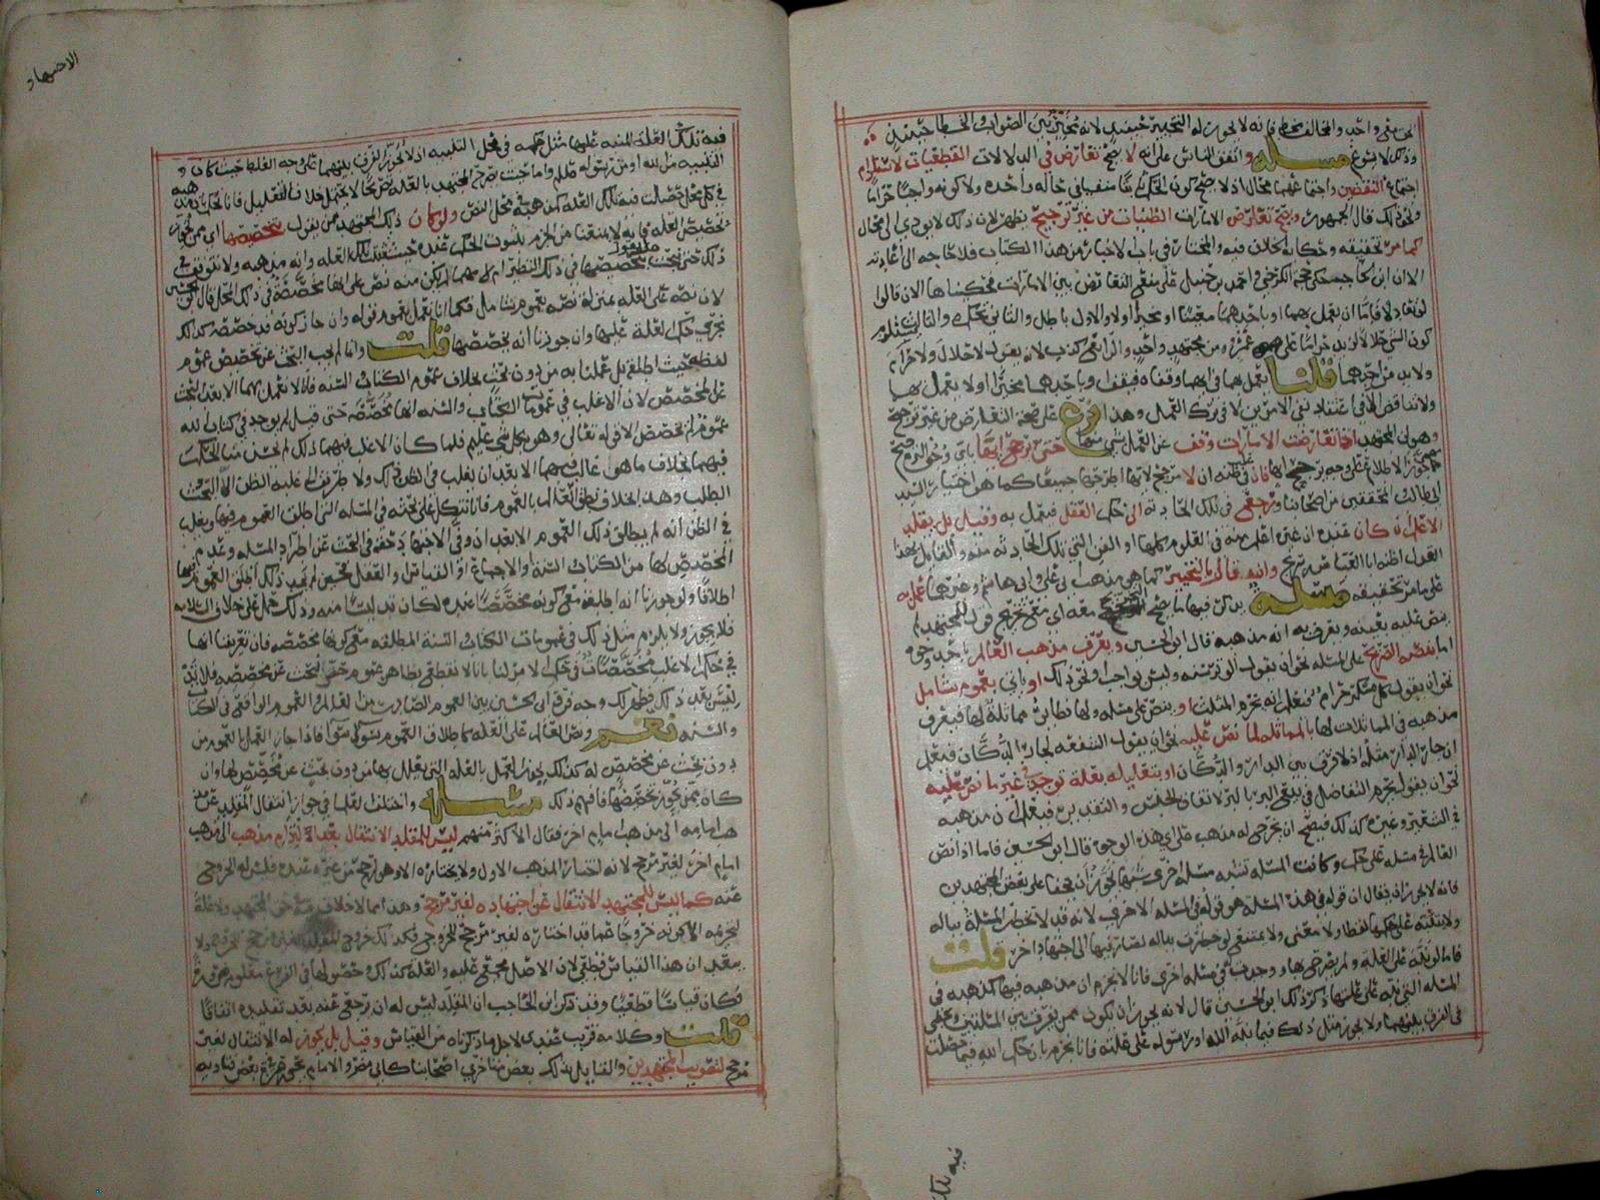 الحق مع واحد والمخالف مخط فانه لا يجوز له التخيير حينئذ لانه تخيير بين الصواب والخطا حينئذ
وذلك لا يسوغ مسئلة واتفق الناس على انه لا يصح تعارض في الدلالات القطعيات لاستلزام
اجتماع النقيضين واجتماعهما محال اذ لا يصح كون الحكم منفيا في حاله واحده ولا كونه واجبا حراما
ونحو ذلك قال الجمهور ويصح تعارض الامارات الظنيات من غير ترجيح يظهر لان ذلك لا يودي الى محال
كما مر تحقيقه وحكاية الخلاف فيه والمختار في باب الاخبار من هذا الكتاب فلا حاجه الى اعادته
الا ان ابن الحاجب حكى عن الكرخي واحمد بن حنبل على منع التعارض بين الامارات محكيناها الان قالوا
لو تعادلا فاما ان يعمل بهما او باحدهما معينا او مخيرا اولا والاول باطل والثاني تحكم والثالث يستلزم
كون الشي حلالا لزيد حراما على عمرو من مجتهد واحد والرابع كذب لانه يقول لا حلال ولا حرام
ولا بد من احدهما قلنا يعمل بهما في انهما وقفاه فيقف او باحدهما مخيرا اولا يعمل بهما
ولا تناقض الا في اعتقاد نفي الامرين لا في ترك العمل وهذا فرع على صحة التعارض من غير ترجيح
وهو ان المجتهد اذا تعارضت الامارات وقف عن العمل بشي منها حتى ترجح ايها
الاطلاع على وجه ترجيح ايها فان في ظنه ان لا مرجح لايها اطرحها جميعا كما هو اختيار السيد
ابي طالب المحققين من اصحابنا ورجع في تلك الحادثة الى حكم العقل فيعمل به وقيل بل يقلد
الاعلم ان كان عنده ان غيره اعلم منه في العلوم كلها او الفن الذي تلك الحادثه منه والقايل بهذا
القول وانه قال بالتخيير كما هو مذهب ابي علي وابي هاشم وغيرهما
على ما مر تحقيقه مسئلة يذكر فيها ما يصح معه ان تخريج قول للمجتهد لم
ينص عليه بعينه ويعرف به انه مذهبه قال ابو الحسين ويعرف مذهب العالم باحد وجوه
اما بنصه الصريح على المسئله نحو ان يقول الوتر سنه وليس بواجب ونحو ذلك او ياتي بعموم شامل
نحو ان يقول كل مسكر حرام فيعلم انه يحرم المثلث او ينص على مسئله ولها نظاير مماثلة لها فيعرف
مذهبه في المماثلات لها بالمماثله لما نص عليه نحو ان يقول الشفعه لجار الدكان فيعلم
ان جار الدار مثله اذ لا فرق بين الدار والدكان او بتعليله بعلة توجد في غير ما نص عليه
نحو ان يقول يحرم التفاضل في بيع البر بالبر لاتفاق الجنس والتقدير فيعلم ان مذهبه
في الشعير وغيره كذلك فيصح ان يخرج له مذهب على اي هذه الوجوه قال ابو الحسين فاما اذا نص
العالم في مسئله على حكم وكانت المسئله تشبه مسئله اخرى شبها يجوز ان يخفا على بعض المجتهدين
فانه لا يجوز ان يقال ان قوله في هذه المسئله هو قوله في المسئله الاخرى لانه قد لا تخطر المسئلة بباله
ولا ينبه على حكمها لفظا ولا معنى ولا يمتنع لو خطرت بباله لصار فيها الى اجتهاد اخر قلت
فاما لو نبه على العلة ولم يصرح بها ووجدت في مسئله اخرى فانا لا نجزم ان مذهبه فيها كمذهبه في
المسئله التي نبه على علتها ذكر ذلك ابو الحسين قال لانه يجوز ان يكون ممن يفرق بين المسئلتين
في الفرق بينهما ولا يجوز مثل ذلك فيما نبه الله او رسوله على علته فانا نجزم بان حكم الله فيما حصلت
فيه تلك
الاجتهاد
فيه تلك العلة المنبه عليها مثل حكمه في محل التنبيه اذ لا يجوز الفرق بينهما على وجه الغلط حيث كان
التنبيه من الله او من رسوله صلعم واما حيث يصرح المجتهد بالعله نصا لا يحتمل خلاف التعليل فانا نحكم
في كل محل حصلت فيه تلك العله كمذهبه في محل النص ولو كان ذلك المجتهد ممن يقول بتخصيصها اي ممن يجوز
تخصيص العله فانه لا يمنعنا من الجزم بثبوت الحكم عنده حيث ثبتت تلك العله وانه مذهبه ولا نتوقف في
ذلك حتى نبحث عن تخصيصها في ذلك النظير ام لا مهما لم يكن منه نص على انها مخصصة في ذلك المحل قال ابو الحسين
لان نصه على العله بمنزلة نصه بعموم شامل فكما انا نعمل بعموم قوله وان جاز كونه قد خصصه كذلك
نجري حكم العلة عليها وان جوزنا انه يخصصها قلت وانما لم يجب البحث عن تخصيص عموم
لفظه حيث اطلق بل عملنا به من دون بحث بخلاف عموم الكتاب والسنه فانا لا نعمل بهما الا بعد البحث
عن المخصص لان الاغلب في عمومات الكتاب والسنه انها مخصصه حتى قيل لم يوجد في كتاب الله
عموم لم يخصص الا قوله تعالى وهو بكل شي عليم فلما كان الاغلب فيهما ذلك لم يحسن منا الحكم
فيهما بخلاف ما هو غالب فيهما الا بعد ان يغلب في الظن ذلك ولا طريق الى غلبه الظن الا البحث
الطلب وهذا بخلاف نطق العالم بالعموم فانا نتكل على بحثه في المسئله التي اطلق العموم فيها ويغلب
في الظن انه لم يطلق ذلك العموم الا بعد ان وفى الاجتهاد حقه في البحث عن اطراد المسئله وعدم
المخصص لها من الكتاب والسنة والاجماع او القياس او العقل فحين لم يجد ذلك اطلق العموم فيها
اطلاقا ولو جوزنا انه اطلقه مع كونه مخصصا عنده لكان قد لبسا منه وذلك محمل على خلاف السلامه
فلا يجوز ولا يلزم مثل ذلك في عمومات الكتاب والسنة المطلقه مع كونها مخصصه فان تعريفنا انها
في حكم الاغلب مخصصات في حكم الامر لنا بانا لا نقطع بظاهر عموم حتى نبحث عن مخصصه فلا تلبيس
بعد ذلك فظهر لك وجه فرق ابي الحسين بين العموم الصادر من العالم والعموم الواقع في الكتاب
والسنه نعم ونص العالم على العله كاطلاق العموم سوا سوا فاذا جاز العمل بالعموم من
دون بحث عن مخصص له كذلك يجوز العمل بالعله التي يعلل بها من دون بحث عن مخصص لها وان
كان ممن يجوز تخصيصها فافهم ذلك مسئلة واختلف العلما في جواز انتقال المقلد عن مذ
هب امامه الى مذهب امام اخر فقال الاكثر منهم ليس للمقلد الانتقال بعد الالتزام مذهب الى مذهب
امام اخر لغير مرجح لانه اختار المذهب الاول ولا يختاره الا وهو ارجح من غيره عنده فليس له الخروج
عنه كما ليس للمجتهد الانتقال عن اجتهاده لغير مرجح وهذا مما لا خلاف فيه اعني المجتهد ولا علة
لتحريمه الا كونه خروجا عما قد اختاره لغير مرجح للخروج فكذلك خروج المقلد
يبعد ان هذا القياس قطعي لان الاصل مجمع عليه والعلة كذلك وحصولها في الفرع معلوم ضرورة
فكان قياسا قطعيا وقد ذكر ابن الحاجب ان المقلد ليس له ان يرجع عنه بعد تقليده اتفاقا
قلت وكلامه قريب عندي لاجل ما ذكرناه من القياس وقيل بل يجوز له الانتقال لغير
مرجح لتصويب المجتهدين والقايل بذلك بعض متاخري اصحابنا كابي مضر والامام يحي بن حمزة في بعض فتاويه